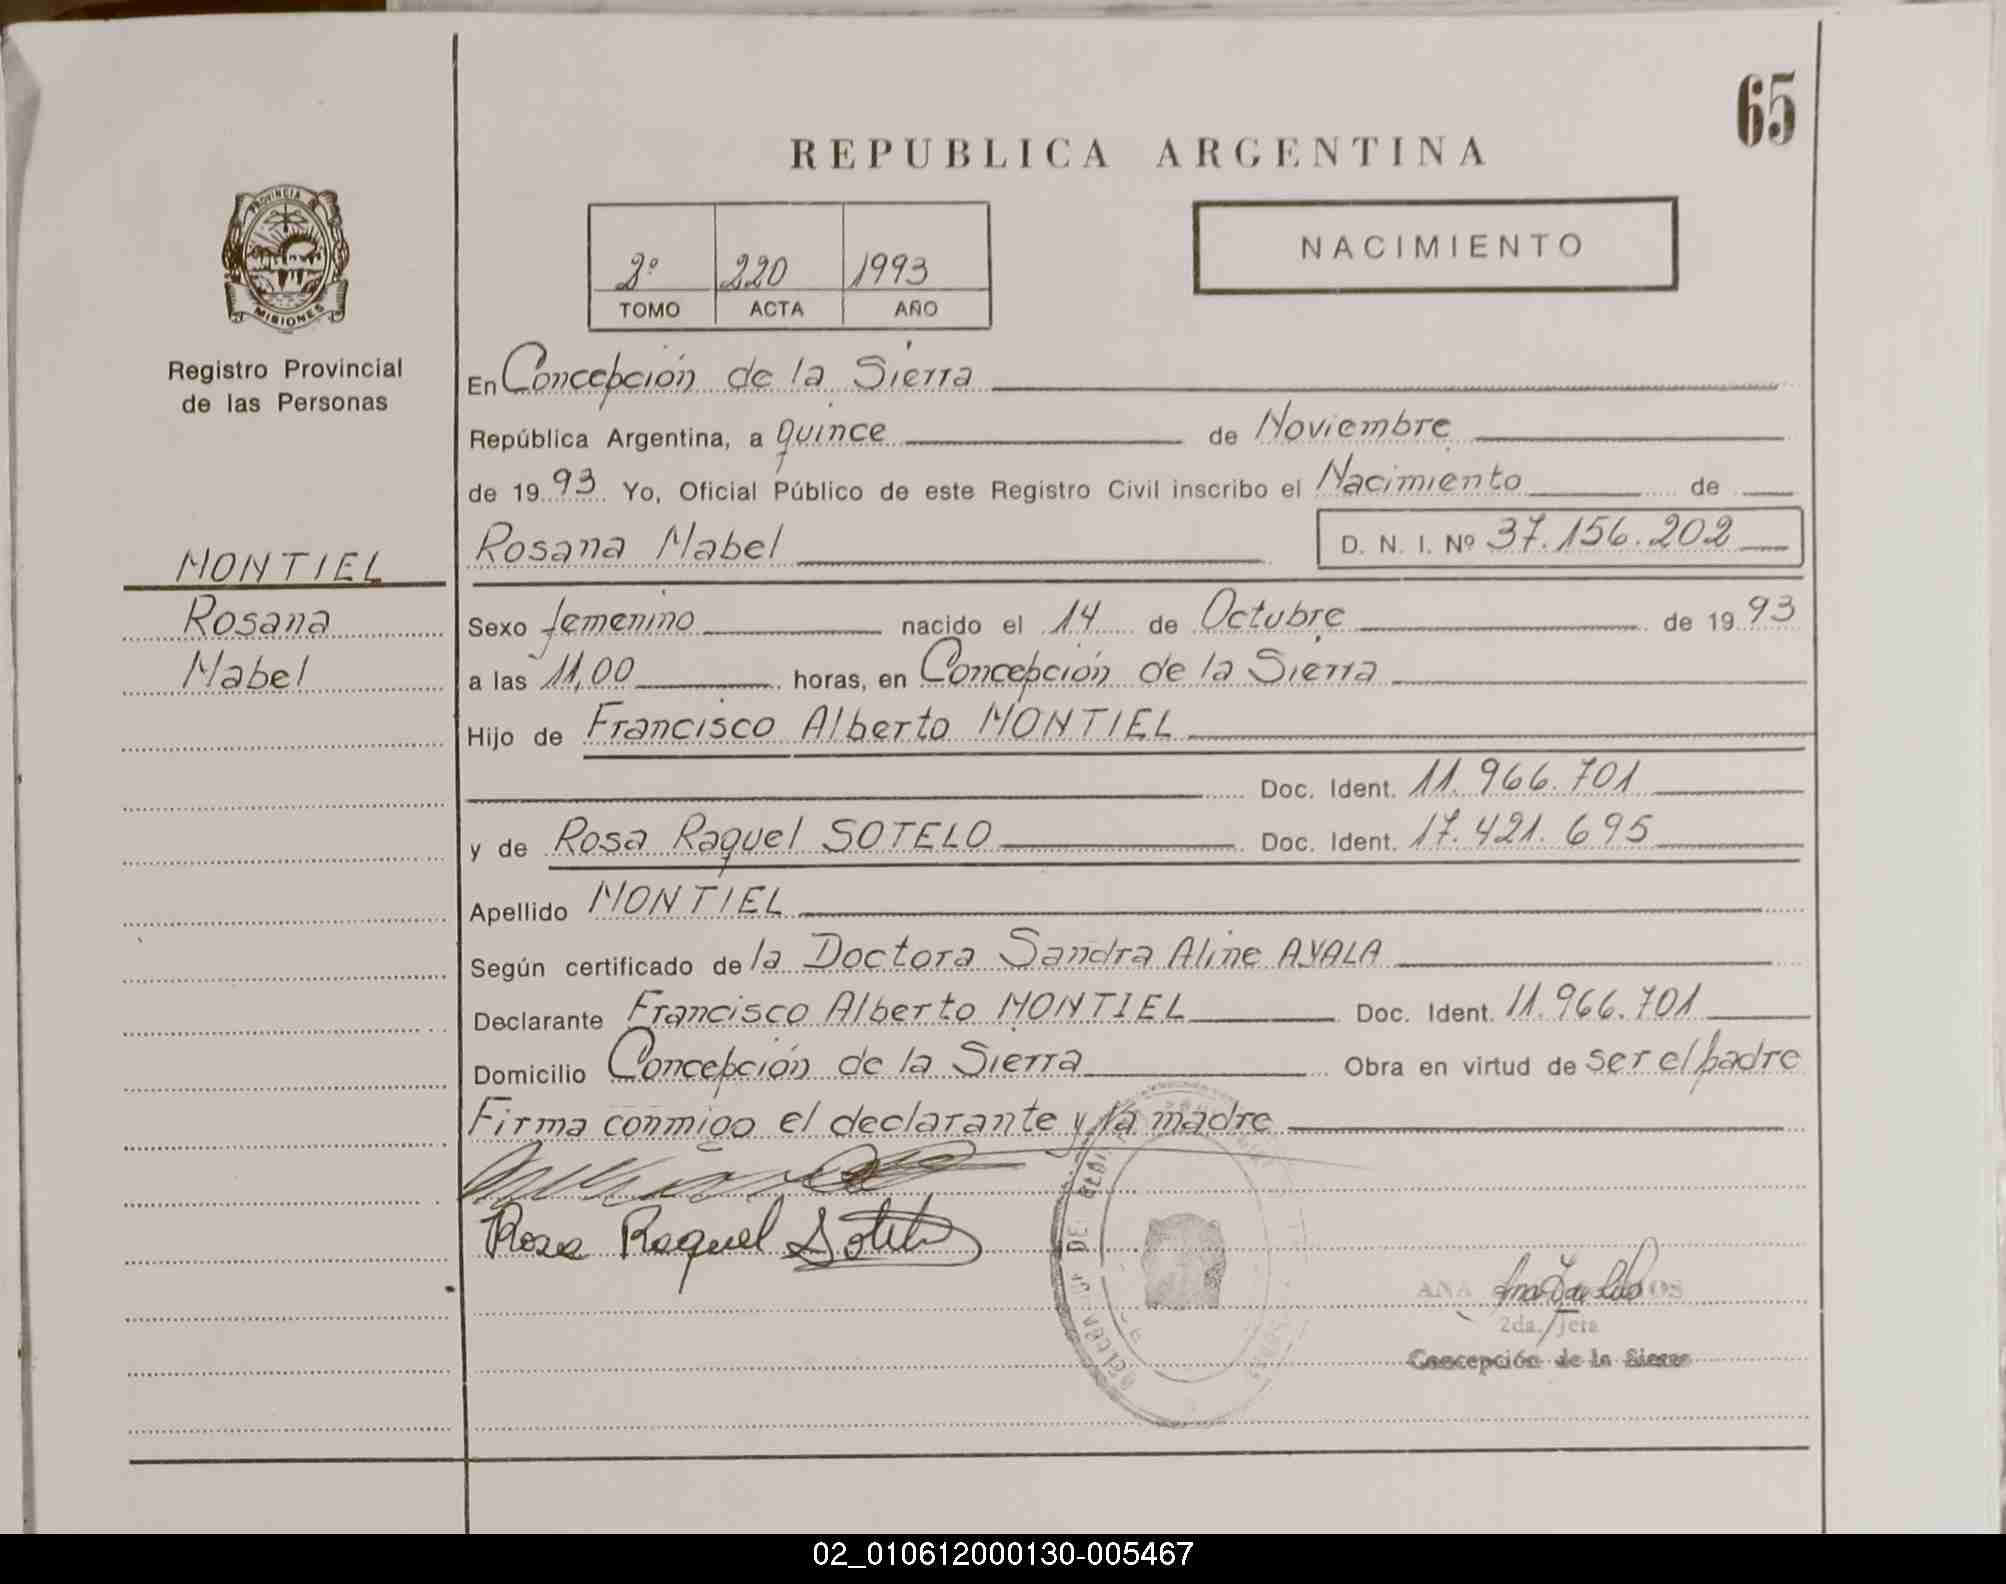 65
REPUBLICA ARGENTINA
PROVINCIA DE
MISIONES
Registro Provincial
de las Personas
2º 220 1993
TOMO ACTA AÑO
NACIMIENTO
En Concepción de la Sierra
República Argentina, a quince de Noviembre
de 1993 Yo, Oficial Público de este Registro Civil inscribo el Nacimiento de
Rosana Mabel D. N. I. Nº 37.156.202
MONTIEL
Rosana
Mabel
Sexo femenino nacido el 14 de Octubre de 1993
a las 11,00 horas, en Concepción de la Sierra
Hijo de Francisco Alberto MONTIEL
Doc. Ident. 11.966.701
y de Rosa Raquel SOTELO Doc. Ident. 17.421.695
Apellido MONTIEL
Según certificado de la Doctora Sandra Aline AYALA
Declarante Francisco Alberto MONTIEL Doc. Ident. 11.966.701
Domicilio Concepción de la Sierra Obra en virtud de ser el padre
Firma conmigo el declarante y la madre
Rosa Raquel Sotelo
ANA
2da. Jefa
Concepción de la Sierra
02_010612000130-005467